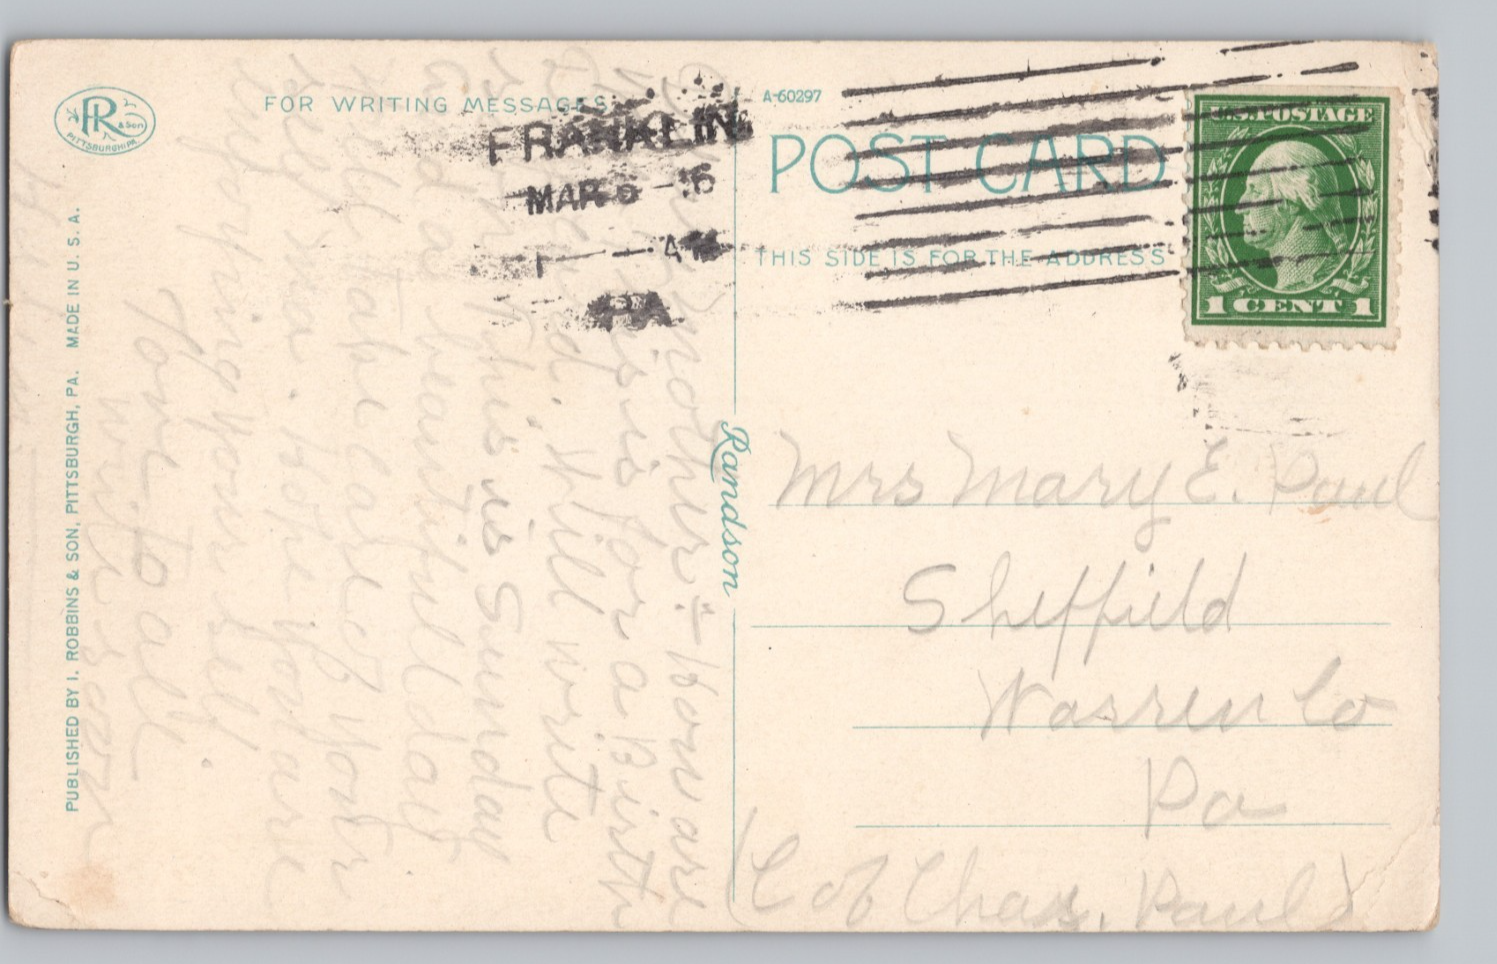 PR & Son
PITTSBURGH, PA.
FOR WRITING MESSAGES
FRANKLIN
MAR 5
PA
A-60297
POST CARD
THIS SIDE IS FOR THE ADDRESS
U.S. POSTAGE
1 CENT 1
Randson
PUBLISHED BY I. ROBBINS & SON, PITTSBURGH, PA. MADE IN U. S. A.
Mrs Mary E. Paul
Sheffield
Warren Co
Pa
(C of Chas. Paul)
mother :- How are
this is for a Birth
Will write
this is Sunday
and a beautiful day
take care of your
self ma. Hope you are
enjoying your self.
Love to all
write soon